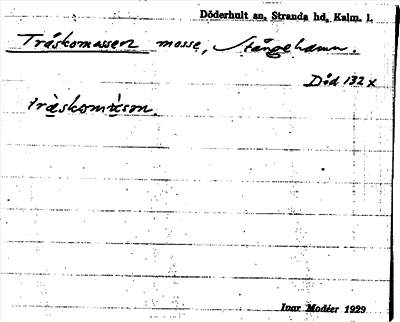 Döderhult sn, Stranda hd, Kalm. l.
Träskomassen mosse, Stångehamn.
Död 132 x
träskomåsən.
Ivar Modéer 1929